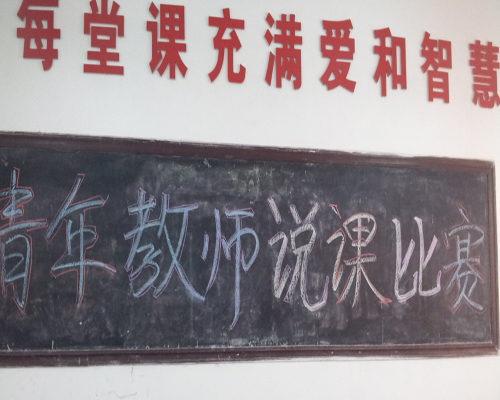 每堂课充满爱和智慧
青年教师说课比赛